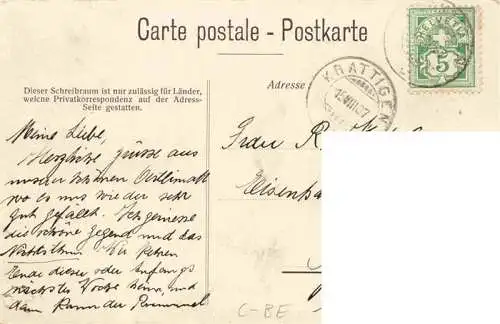 Carte postale - Postkarte
HELVETIA
5
KRATTIGEN
Dieser Schreibraum ist nur zulässig für Länder,
welche Privatkorrespondenz auf der Adress-
Seite gestatten.
Adresse
Meine Liebe,
Herzliche Grüsse aus
unserer schönen
wo es uns wieder sehr
gut gefällt. Ich geniesse
die schöne Gegend und das
Nichtsthun. Wir kehren
Ende dieser oder Anfangs
nächster Woche heim, und
dann kann der
Frau R
Eisenba
C-BE